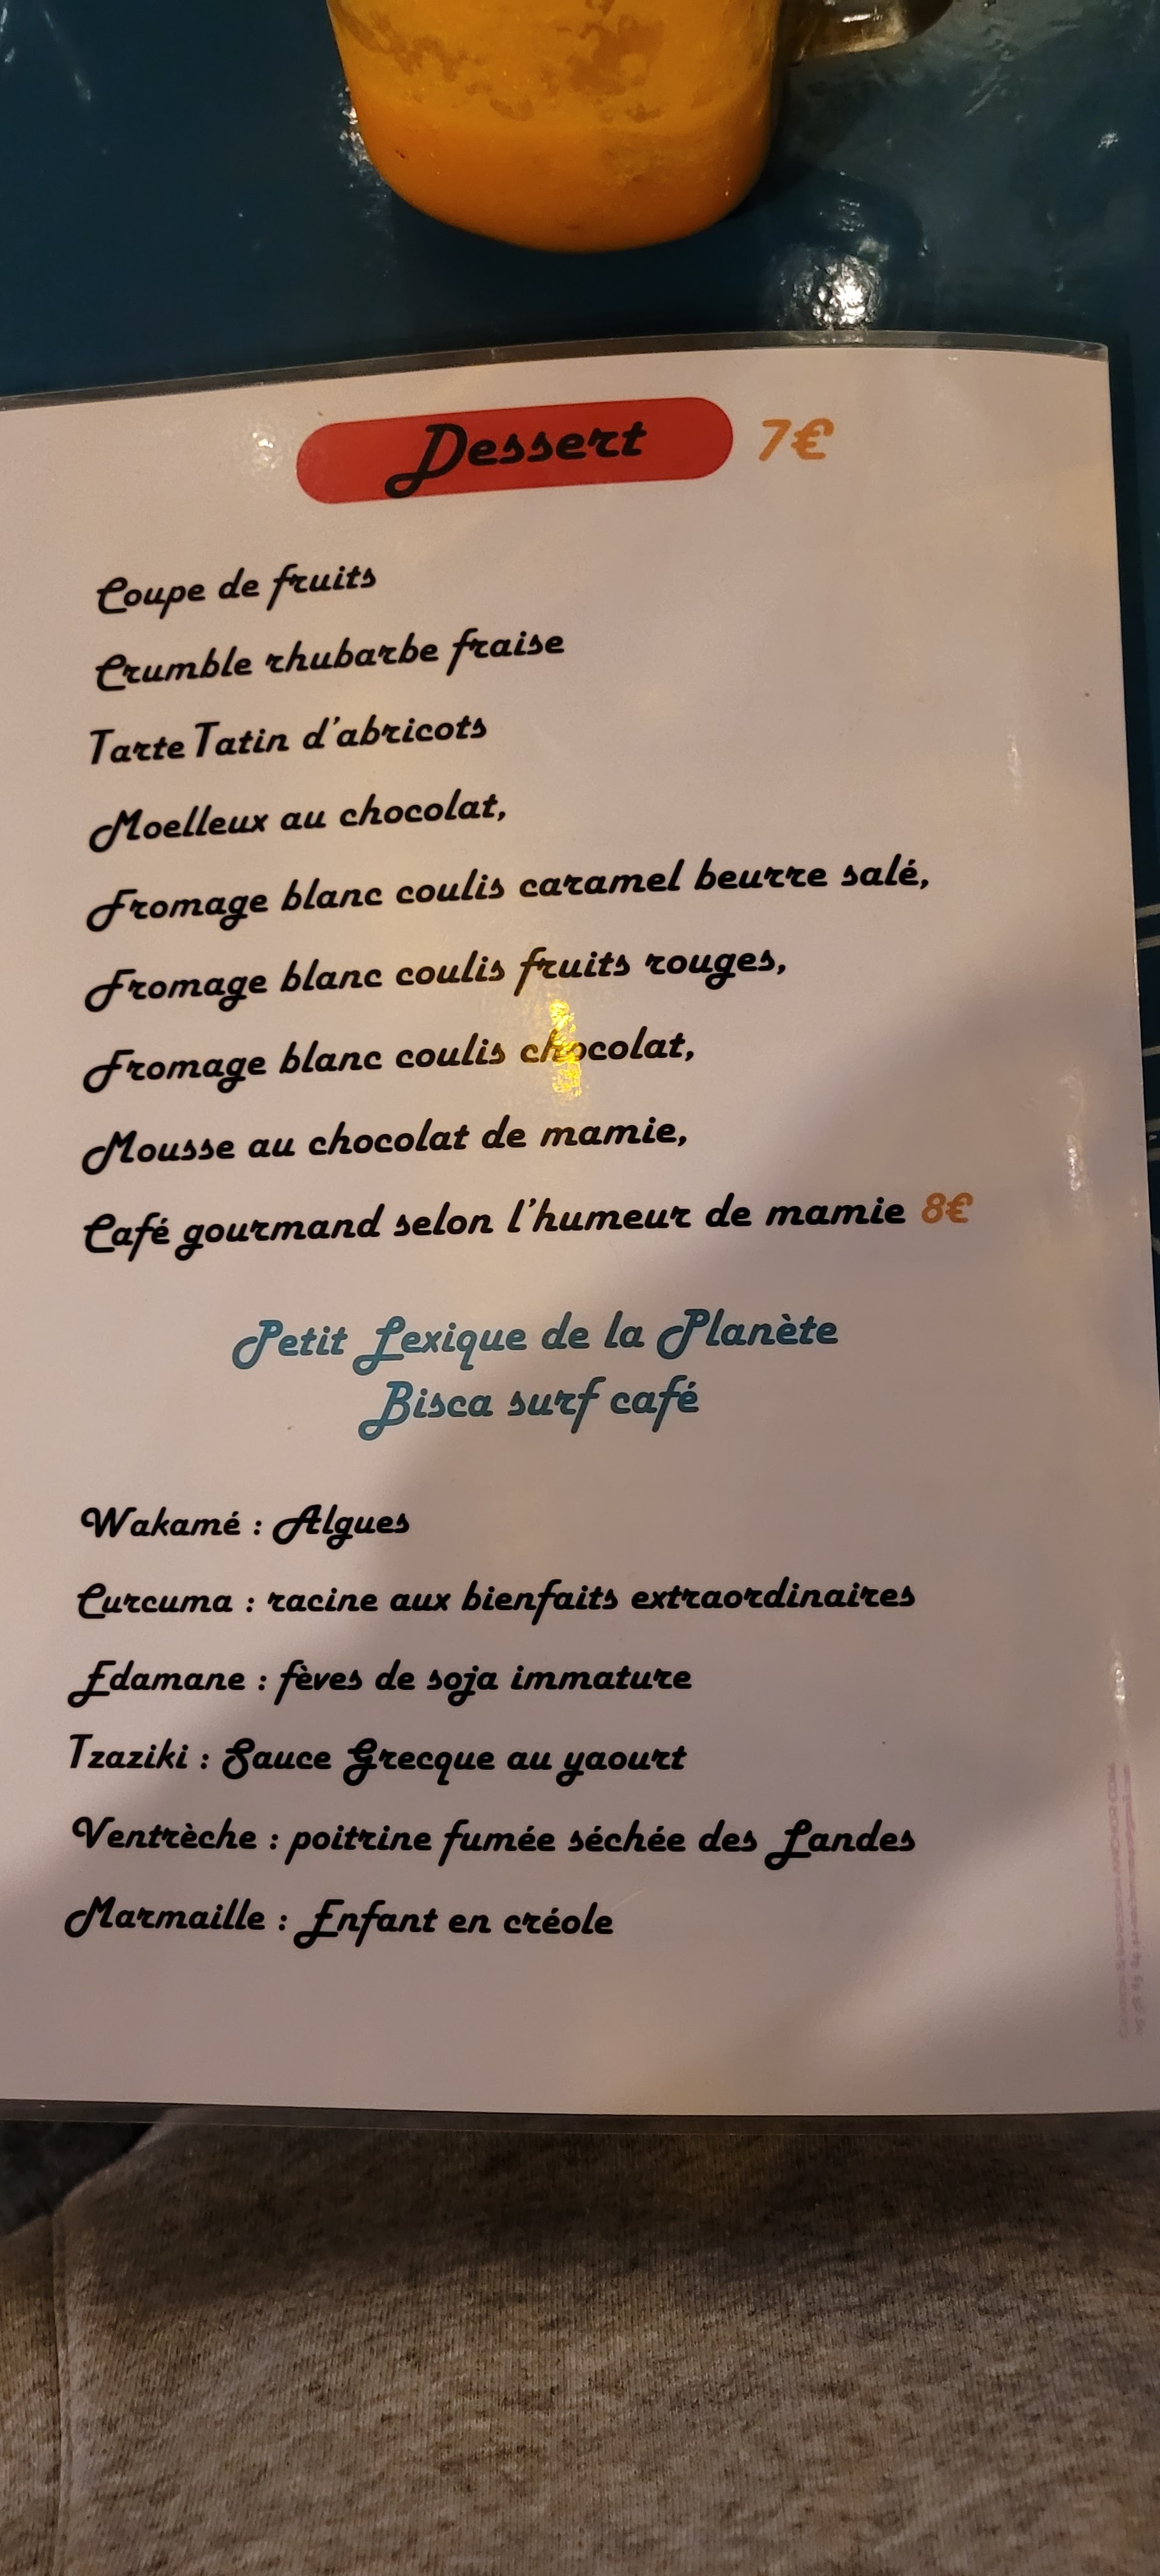 Dessert 7€
Coupe de fruits
Crumble rhubarbe fraise
Tarte Tatin d'abricots
Moelleux au chocolat,
Fromage blanc coulis caramel beurre salé,
Fromage blanc coulis fruits rouges,
Fromage blanc coulis chocolat,
Mousse au chocolat de mamie,
Café gourmand selon l'humeur de mamie 8€
Petit Lexique de la Planète
Bisca surf café
Wakamé : Algues
Curcuma : racine aux bienfaits extraordinaires
Edamane : fèves de soja immature
Tzaziki : Sauce Grecque au yaourt
Ventrèche : poitrine fumée séchée des Landes
Marmaille : Enfant en créole